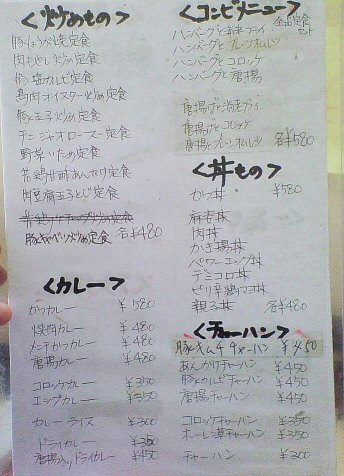 <炒めもの>
豚しょうが焼定食
肉もやし炒め定食
豚塩カルビ定食
鶏肉オイスター炒め定食
豚と玉子炒め定食
チンジャオロース一定食
野菜いため定食
若鶏甘酢あんかけ定食
肉豆腐玉子とじ定食
豚とキャベツ炒め定食 各¥480
<カレー>
かつカレー ¥580
焼肉カレー ¥480
メンチかつカレー ¥480
唐揚カレー ¥480
コロッケカレー ¥350
エッグカレー ¥350
カレーライス ¥300
ドライカレー ¥350
唐揚入りドライカレー ¥450
<コンビメニュー>
全品定食セット
ハンバーグと海老フライ
ハンバーグとプレーンオムレツ
ハンバーグとコロッケ
ハンバーグと唐揚
唐揚げと海老フライ
唐揚げとコロッケ
唐揚げとプレーンオムレツ 各¥580
<丼もの>
かつ丼 ¥580
麻婆丼
肉丼
かき揚丼
パワーエッグ丼
デミコロ丼
ピリ辛鶏マヨ丼
親子丼 各¥480
<チャーハン>
豚キムチチャーハン ¥450
あんかけチャーハン ¥450
豚カルビチャーハン ¥450
唐揚チャーハン ¥450
コロッケチャーハン ¥350
ホーレン草チャーハン ¥350
チャーハン ¥300